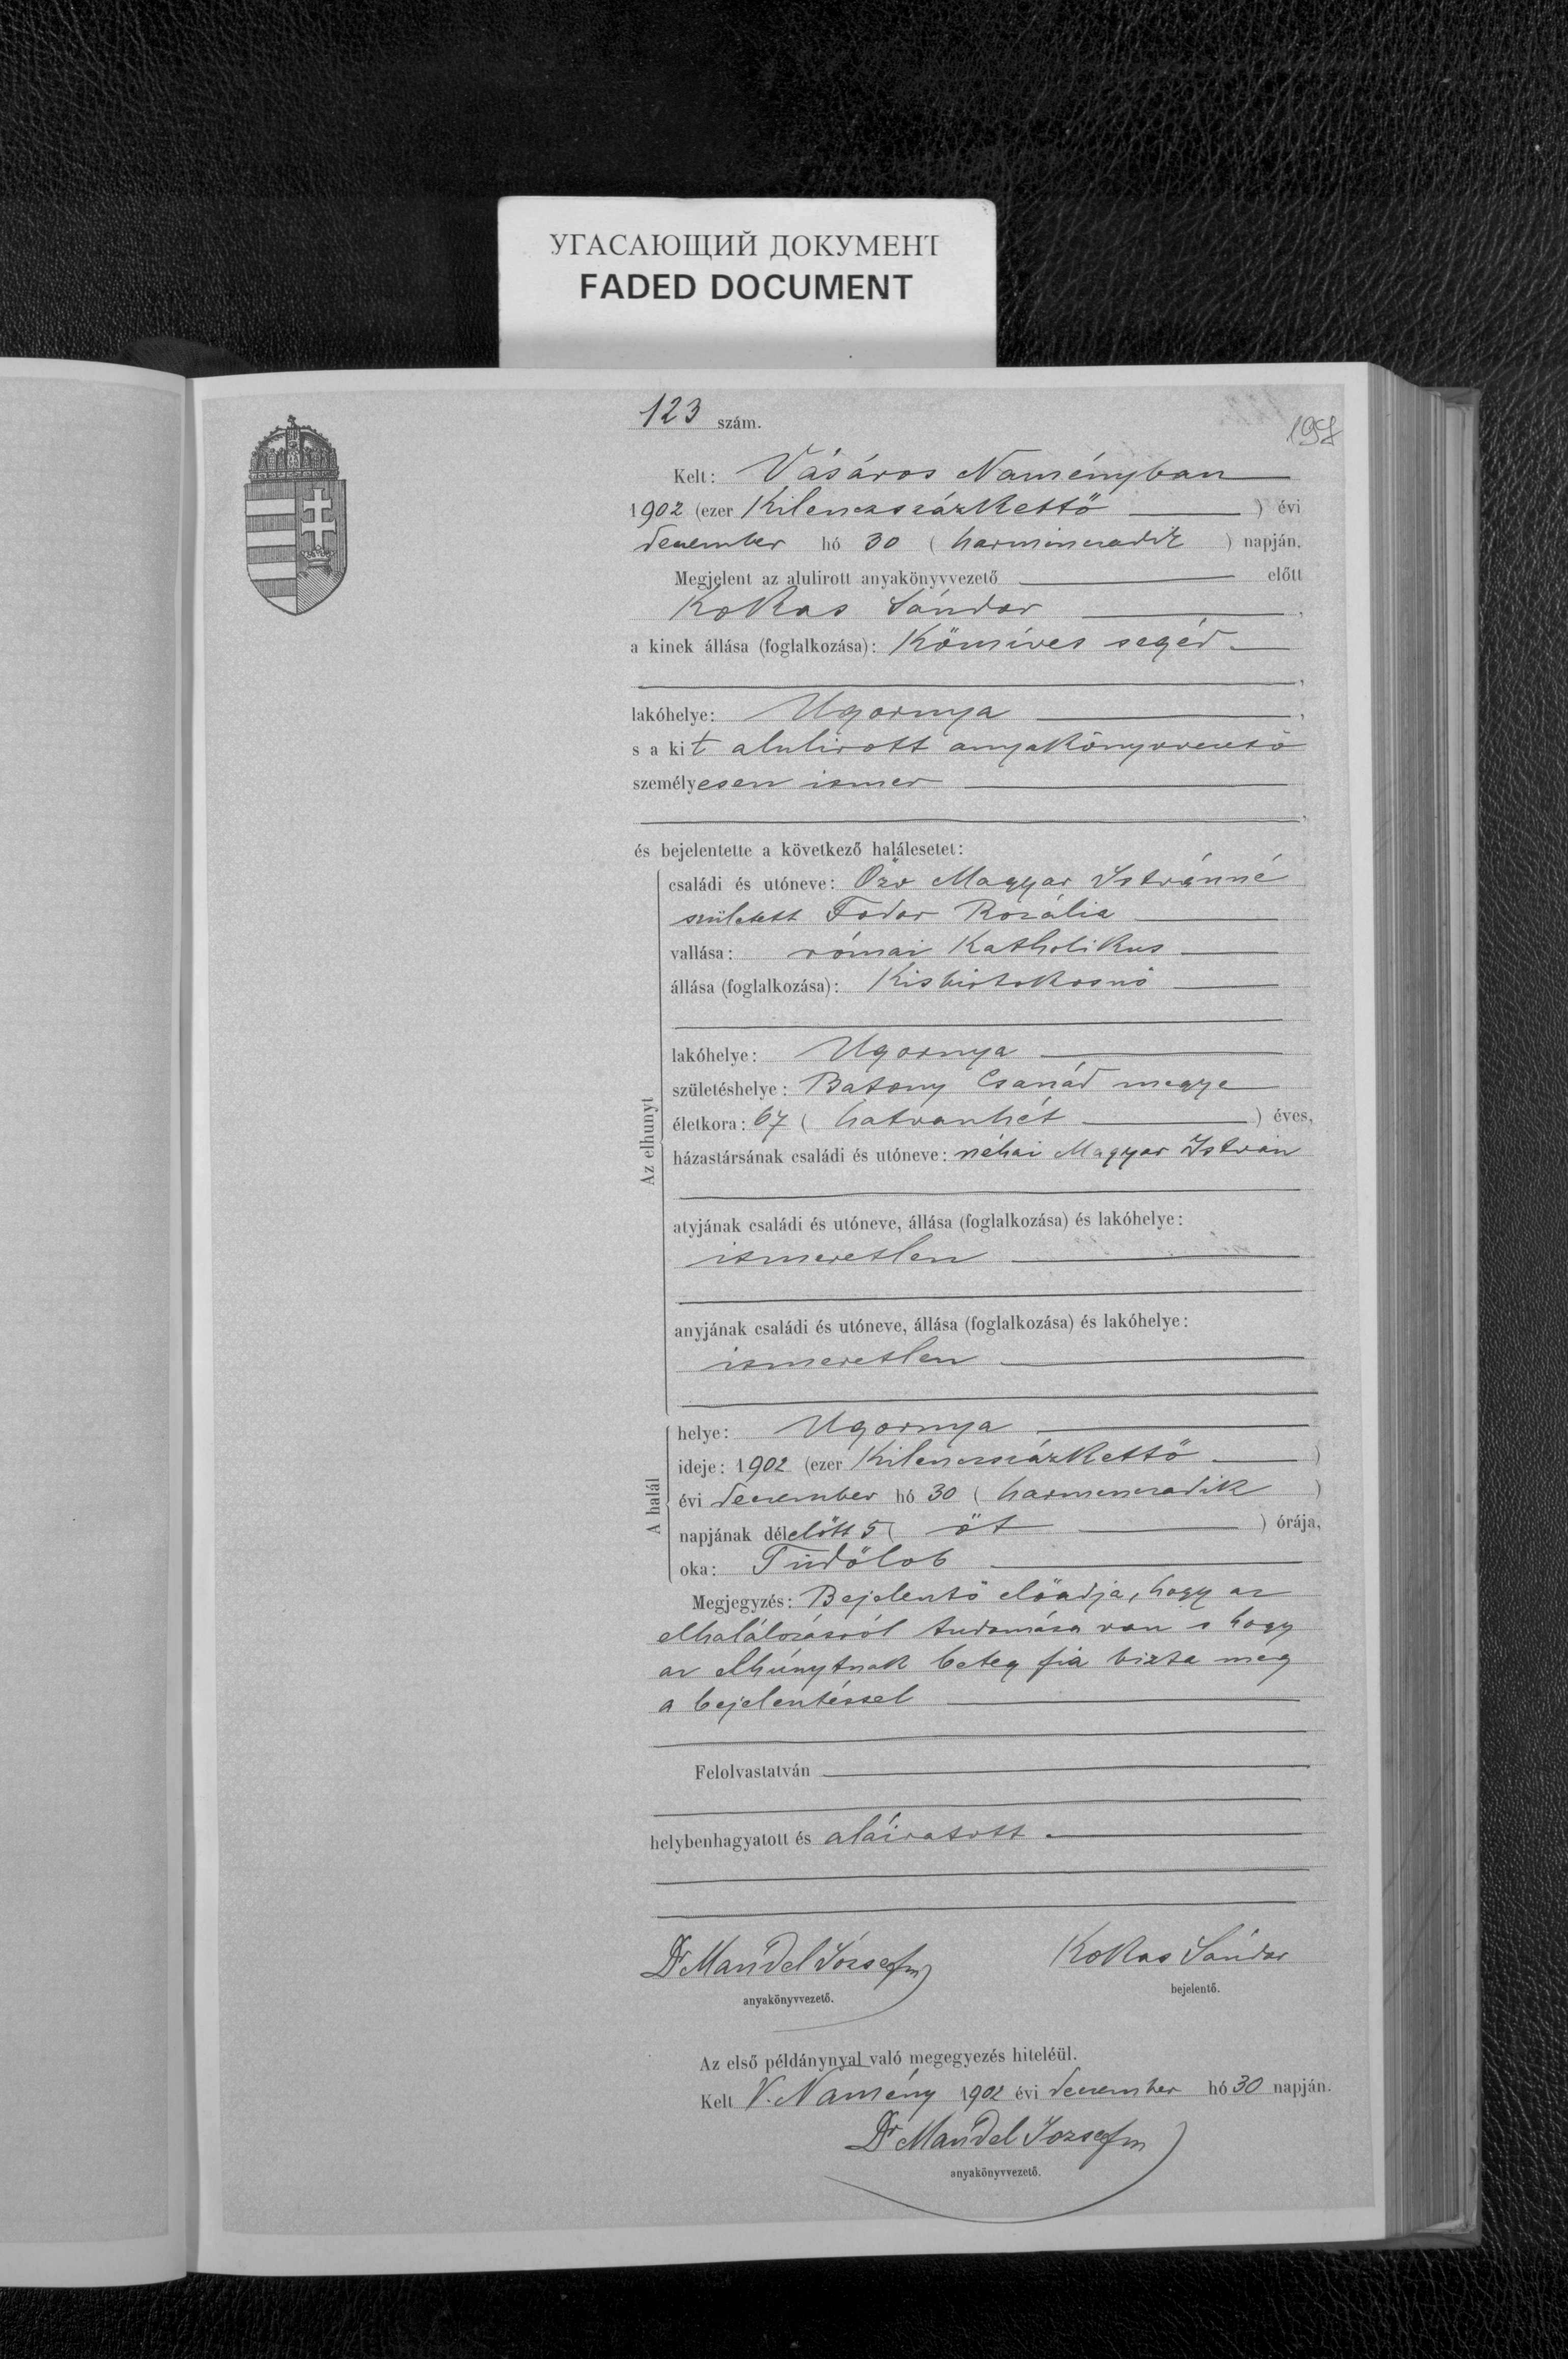 УГАСАЮЩИЙ ДОКУМЕНТ
FADED DOCUMENT
123 szám.
Kelt: Vásáros Naményban
1902 (ezer Kilenczszázkettő ) évi
deczember hó 30 ( harminczadik ) napján.
Megjelent az alulirott anyakönyvvezető előtt
Kokas Sándor ,
a kinek állása (foglalkozása): Kőmíves segéd
,
lakóhelye: Ugornya ,
s a kit alulirott anyakönyvvezető
személyesen ismer
,
és bejelentette a következő halálesetet:
Az elhunyt
családi és utóneve: Özv Magyar Istvánné
született Fodor Rozália
vallása: római Katholikus
állása (foglalkozása): Kisbirtokosnő
lakóhelye: Ugornya
születéshelye: Batony Csanád megye
életkora: 67 ( hatvanhét ) éves,
házastársának családi és utóneve: néhai Magyar István
atyjának családi és utóneve, állása (foglalkozása) és lakóhelye:
ismeretlen
anyjának családi és utóneve, állása (foglalkozása) és lakóhelye:
ismeretlen
A halál
helye: Ugornya
ideje: 1902 (ezer Kilenczszázkettő )
évi deczember hó 30 ( harminczadik )
napjának délelőtt 5 ( öt ) órája,
oka: Tüdőlob
Megjegyzés: Bejelentő előadja, hogy az
elhalálozásról tudomása van s hogy
az elhúnytnak beteg fia bizta meg
a bejelentéssel
Felolvastatván
helybenhagyatott és aláiratott
Dr Mandel József Kokas Sándor
anyakönyvvezető. bejelentő.
Az első példánynyal való megegyezés hiteléül.
Kelt V. Namény 1902 évi deczember hó 30 napján.
Dr Mandel József
anyakönyvvezető.